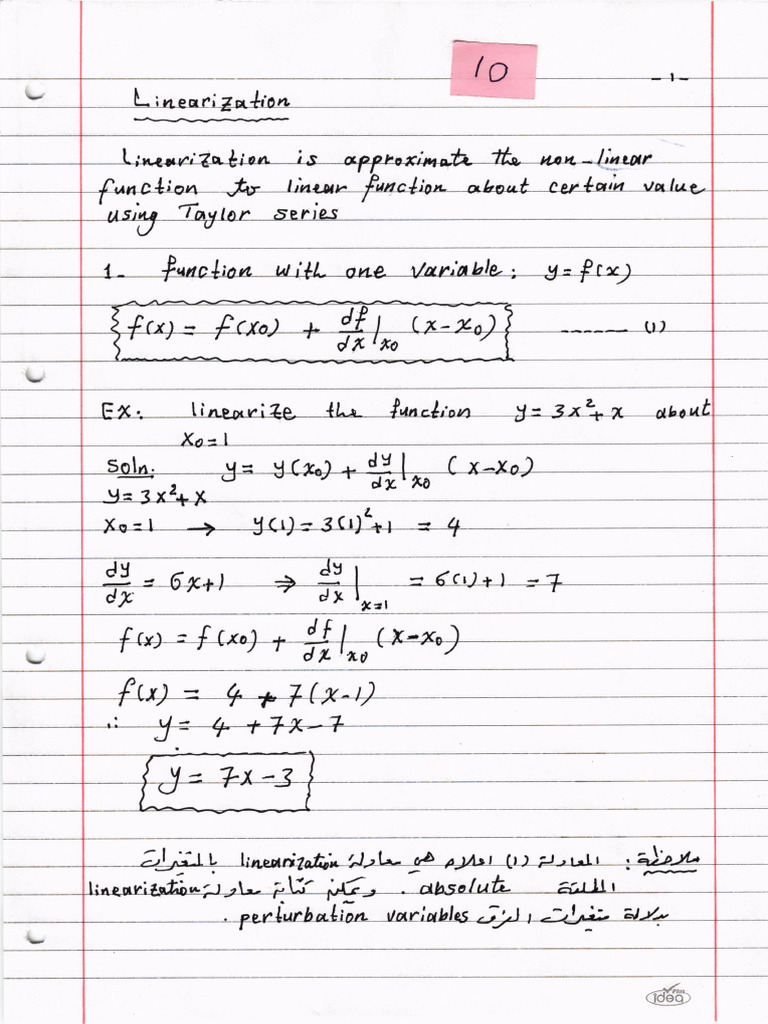 10
-1-
Linearization
Linearization is approximate the non-linear
function to linear function about certain value
using Taylor series
1- function with one variable: y=f(x)
f(x) = f(x0) + df/dx|x0 (x-x0) ------ (1)
EX: linearize the function y=3x²+x about
x0=1
Soln: y= y(x0) + dy/dx|x0 (x-x0)
y=3x²+x
x0=1 → y(1)=3(1)²+1 = 4
dy/dx = 6x+1 ⇒ dy/dx|x=1 = 6(1)+1 = 7
f(x) = f(x0) + df/dx|x0 (x-x0)
f(x) = 4 + 7(x-1)
∴ y= 4 +7x-7
y= 7x-3
ملاحظة: المعادلة (1) اعلاه هي معادلة linearization بالمتغيرات
المطلقة absolute. ويمكن كتابة معادلة linearization
بدلالة متغيرات الفرق perturbation variables.
Plus
idea